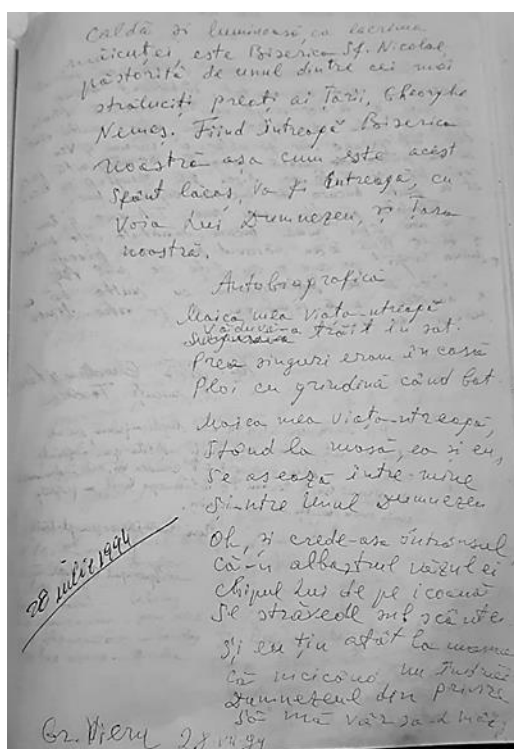 Caldă și luminoasă, ca lacrima
măicuței, este Biserica Sf. Nicolae,
păstorită de unul dintre cei mai
străluciți preoți ai Țării, Gheorghe
Nemeș. Fiind întreagă Biserica
noastră așa cum este acest
sfânt lăcaș, va fi întreagă, cu
voia Lui Dumnezeu, și Țara
noastră.
Autobiografică
Maica mea viața-ntreagă
Văduvă-a trăit în sat.
Prea singuri eram în casă
Ploi cu grindină când bat.
Maica mea viața-ntreagă,
Stând la masă, ea și eu,
Se așează între mine
Și-ntre Unul Dumnezeu
Oh, și crede-așa într-însul
Că-n albastrul văzului ei
Chipul Lui de pe icoană
Se străvede sub scântei.
Și eu țin atât la mama
Că nicicând nu
Dumnezeul din
Să mă
28 iulie 1994
Gr. Vieru 28 VII 94